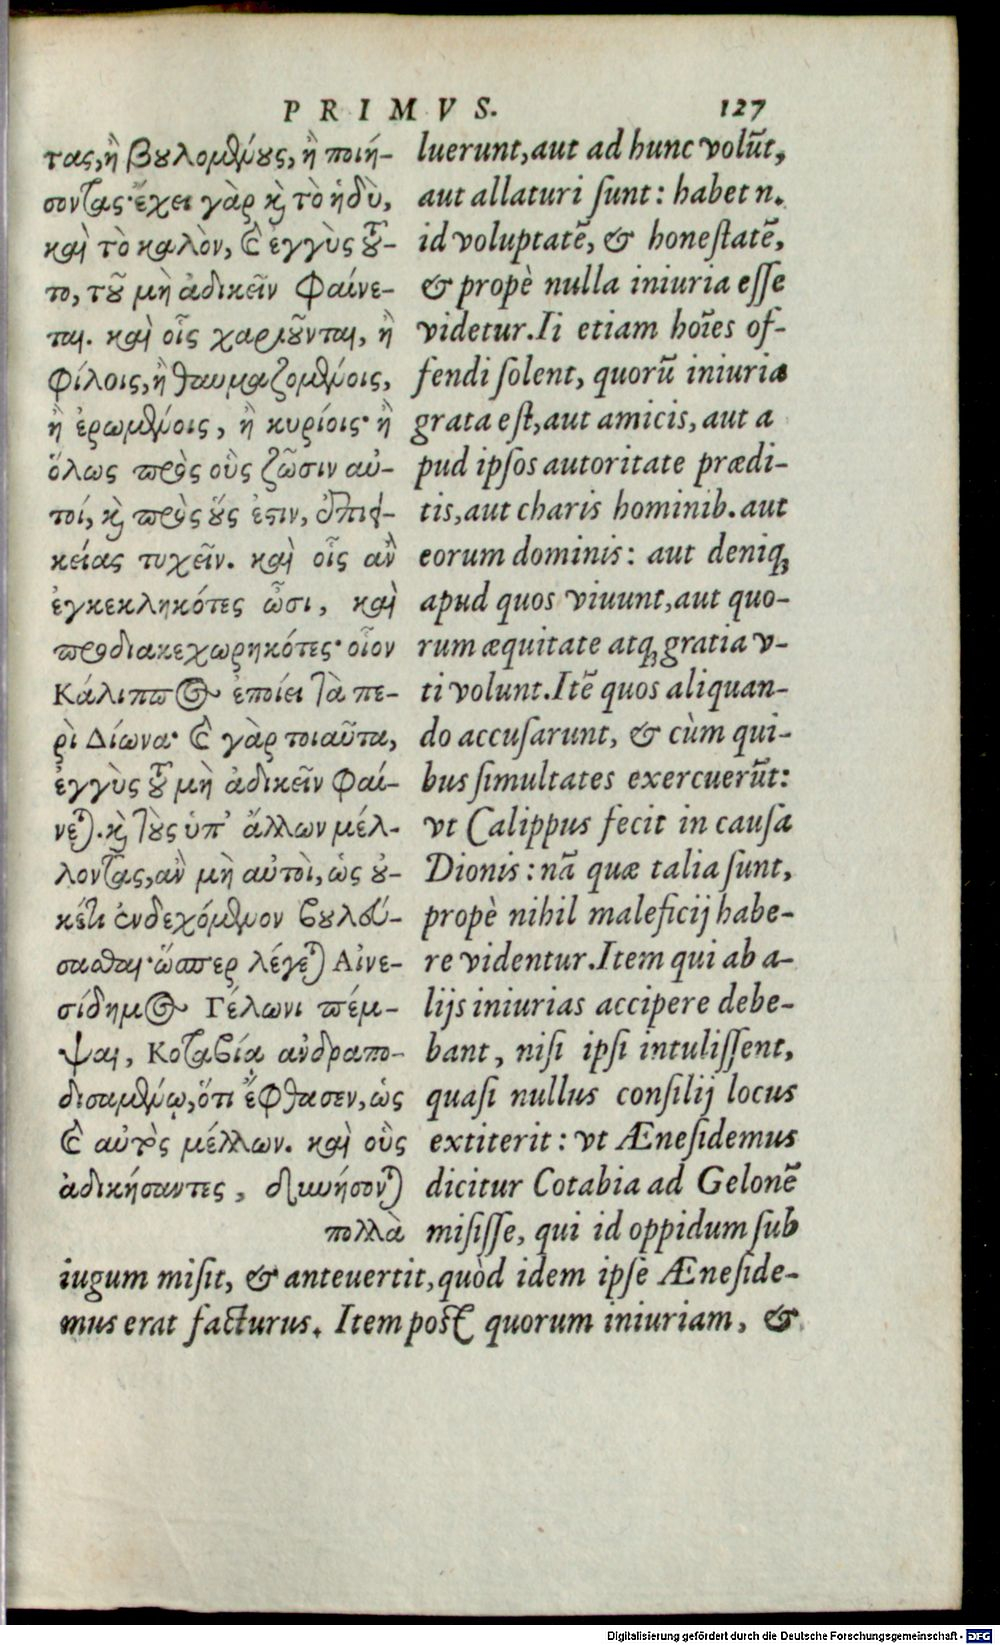 PRIMVS. 127
τας, ἢ βουλομένους, ἢ ποιή-
σοντας· ἔχει γὰρ καὶ τὸ ἡδὺ,
καὶ τὸ καλὸν, καὶ ἐγγὺς τού-
το, τοῦ μὴ ἀδικεῖν φαίνε-
ται. καὶ οἷς χαριοῦνται, ἢ
φίλοις, ἢ θαυμαζομένοις,
ἢ ἐρωμένοις, ἢ κυρίοις· ἢ
ὅλως πρὸς οὓς ζῶσιν αὐ-
τοί, καὶ πρὸς οὕς ἐστιν, ἐπιει-
κείας τυχεῖν. καὶ οἷς ἂν
ἐγκεκληκότες ὦσι, καὶ
προδιακεχωρηκότες· οἷον
Κάλιππος ἐποίει τὰ πε-
ρὶ Δίωνα· καὶ γὰρ τοιαῦτα,
ἐγγὺς τοῦ μὴ ἀδικεῖν φαί-
νεται. καὶ τοὺς ὑπ' ἄλλων μέλ-
λοντας, ἂν μὴ αὐτοὶ, ὡς οὐ-
κέτι ἐνδεχόμενον βουλεύ-
σασθαι· ὥσπερ λέγεται Αἰνε-
σίδημος Γέλωνι πέμ-
ψαι, Κοταβία ἀνδραπο-
δισαμένῳ, ὅτι ἔφθασεν, ὡς
καὶ αὐτὸς μέλλων. καὶ οὓς
ἀδικήσαντες, δυνήσονται
πολλὰ
luerunt, aut ad hunc volūt,
aut allaturi ſunt: habet n.
id voluptatē, & honeſtatē,
& propè nulla iniuria eſſe
videtur. Ii etiam hoīes of-
fendi ſolent, quorū iniuria
grata eſt, aut amicis, aut a
pud ipſos autoritate prædi-
tis, aut charis hominib. aut
eorum dominis: aut deniq;
apud quos viuunt, aut quo-
rum æquitate atq; gratia v-
ti volunt. Itē quos aliquan-
do accuſarunt, & cùm qui-
bus ſimultates exercuerūt:
vt Calippus fecit in cauſa
Dionis: nā quæ talia ſunt,
propè nihil maleficij habe-
re videntur. Item qui ab a-
lijs iniurias accipere debe-
bant, niſi ipſi intuliſſent,
quaſi nullus conſilij locus
extiterit: vt Æneſidemus
dicitur Cotabia ad Gelonē
miſiſſe, qui id oppidum ſub
iugum miſit, & anteuertit, quòd idem ipſe Æneſide-
mus erat facturus. Item poſt quorum iniuriam, &
Digitalisierung gefördert durch die Deutsche Forschungsgemeinschaft - DFG